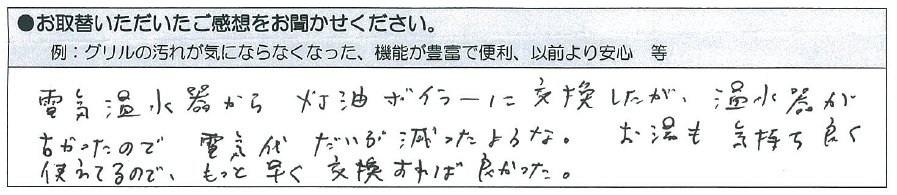 ●お取替いただいたご感想をお聞かせください。
例：グリルの汚れが気にならなくなった、機能が豊富で便利、以前より安心　等
電気温水器から灯油ボイラーに交換したが、温水器が
古かったので電気代だいぶ減ったような。お湯も気持ち良く
使えてるので、もっと早く交換すれば良かった。